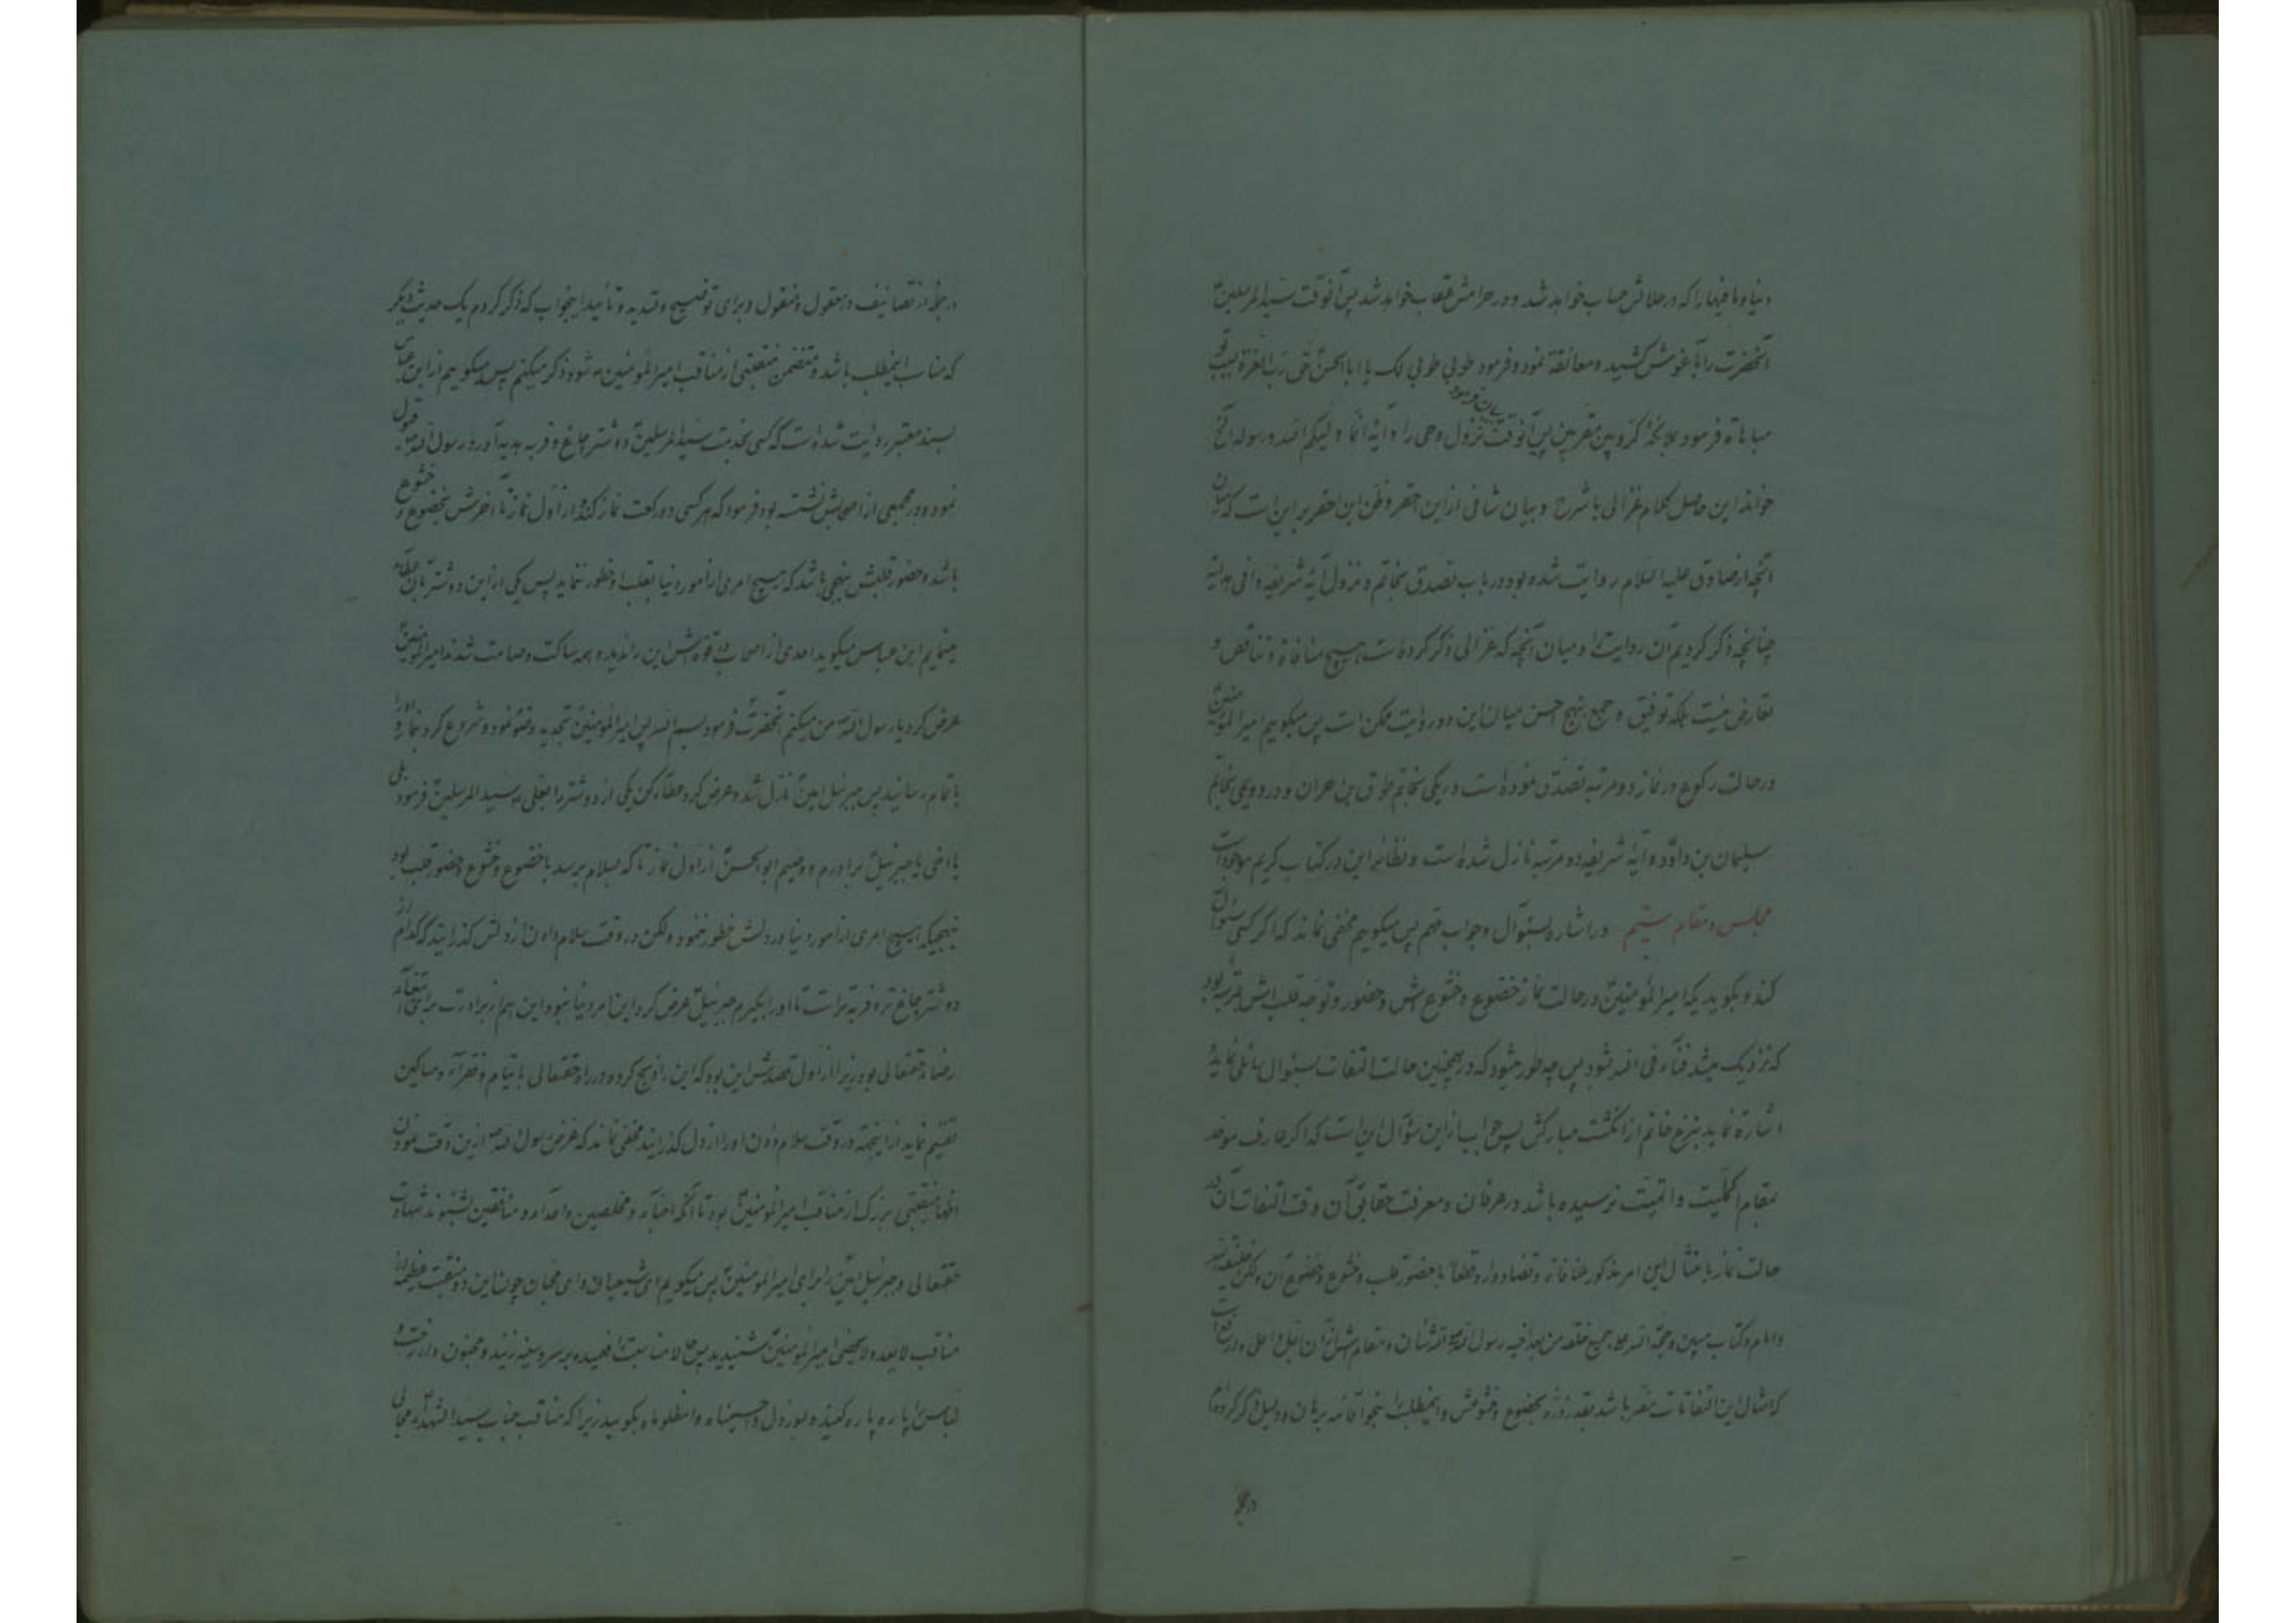 دنیا و ما فیها را که در حلالش حساب خواهد شد و در حرامش عقاب خواهد شد پس آنوقت سید المرسلین
آنحضرت را بآغوش کشید و معانقة نمود و فرمود طوبی طوبی لک یا ابا الحسن حق رب العزة
مباهاة فرمود بملائکه کروبین مقربین پس آنوقت نزول وحی را و آیه انما ولیکم الله و رسوله الخ
بیان فرمود
خواند این حاصل کلام غزالی با شرح و بیان شافی از این احقر و ظن این احقر بر این است که میان
آنچه از صادق علیه السلام روایت شده بود در باب تصدق بخاتم و نزول آیه شریفه وافی هدایه
چنانچه ذکر کردیم آن روایت را و میان آنچه که غزالی ذکر کرده است هیچ منافاة و تناقض و
تعارض نیست بلکه توفیق و جمع بنهج احسن میان این دو روایت ممکن است پس میگوییم امیر المؤمنین
در حالت رکوع در نماز دو مرتبه تصدق نموده است در یکی بخاتم طوق بن حران و در دویمی بخاتم
سلیمان بن داود و آیه شریفه دو مرتبه نازل شده است و نظائر این در کتاب کریم موجود است
مجلس و مقام ششم در اشاره بسئوال و جواب مهم پس میگوییم مخفی نماند که اگر کسی سئوال
کند و بگوید که امیر المؤمنین در حالت نماز خضوع و خشوعش و حضور و توجه قلب اش بمرتبه بود
که نزدیک میشد فناء فی الله شود پس چه طور میشود که در همچنین حالت التفات بسئوال سائلی نماید و
اشارة نماید بنزع خاتم از انکشت مبارکش پس جواب از این سؤال این است که اگر عارف موحد
بمقام اکملیت و اتمیت نرسیده باشد در عرفان و معرفت حقایق آن وقت التفات آن در
حالت نماز بامثال این امر مذکور منافاة و تضاد دارد قطعا با حضور قلب و خشوع و خضوع آن ولکن خلیفة الله
و امام و کتاب مبین و حجة الله علی جمیع خلقه من بعد اخیه رسول الله شأن و مقامش از آن اجل و اعلی و ارفع است
که امثال این التفاتات مضر باشد بقدر ذره بخضوع و خشوعش و اینمطلب را بنحو اقامه برهان و دلیل ذکر کرده‌ام
در جمله
در جمله از تصانیف در معقول و منقول و برای توضیح و تسدید و تأیید اینجواب که ذکر کردم یک حدیث دیگر
که مناسب اینمطلب باشد و متضمن منقبتی از مناقب امیر المؤمنین شود ذکر میکنم پس میگوییم از ابن عباس
بسند معتبر روایت شده است که کسی بخدمت سید المرسلین دو شتر چاغ و فربه هدیه آورد رسول الله قبول
نمود و در مجمعی از اصحابش نشسته بود فرمود که هر کسی دو رکعت نماز کند و از اول نماز تا آخرش بخضوع و خشوع
باشد و حضور قلبش بنهجی باشد که هیچ امری از امور دنیا بقلب او خطور ننماید پس یکی از این دو شتر بآن عطاء
مینمایم ابن عباس میگوید احدی از اصحاب در قوه‌اش این را ندید و همه ساکت و صامت شدند امیر المؤمنین
عرض کرد یا رسول الله من میکنم آنحضرت فرمود بسم الله پس امیر المؤمنین تجدید وضو نمود و شروع کرد بنماز و او را
باتمام رسانید پس جبرئیل امین نازل شد و عرض کرد عطاء کن یکی از دو شتر را بعلی سید المرسلین فرمود بلی
یا اخی یا جبرئیل برادرم و وصیم ابو الحسن از اول نماز تا که سلام برسد با خضوع و خشوع و حضور قلب بود
بنهجیکه هیچ امری از امور دنیا در دلش خطور ننمود ولکن در وقت سلام دادن از دلش گذرانید که کدام از
دو شتر چاغ تر و فربه تر است تا او را بگیرم جبرئیل عرض کرد این امر دنیا نبود این هم از برادرت برای ابتغاء
رضاء حقتعالی بود زیرا از اول قصدش این بود که این را ذبح کرده در راه حقتعالی بایتام و فقراء و مساکین
تقسیم نماید از اینجهة در وقت سلام دادن او را از دل گذرانید مخفی نماند که غرض رسول الله از این دقت نمودن
اظهار منقبتی بزرگ از مناقب امیر المؤمنین بود تا آنکه احباء و مخلصین و اعداء و منافقین بشنوند شهادت
حقتعالی و جبرئیل امین را برای امیر المؤمنین پس میگویم ای شیعیان و ای محبان چون این دو منقبت عظیمه را از
مناقب لا یعد و لا یحصی امیر المؤمنین شنیدید پس حالا مناسبت را فهمیده بر سر و سینه زنید و محزون و
لباس را پاره پاره کنید و بسوز دل وا حسیناه وا مظلوماه بگویید زیرا که مناقب جناب سید الشهداء